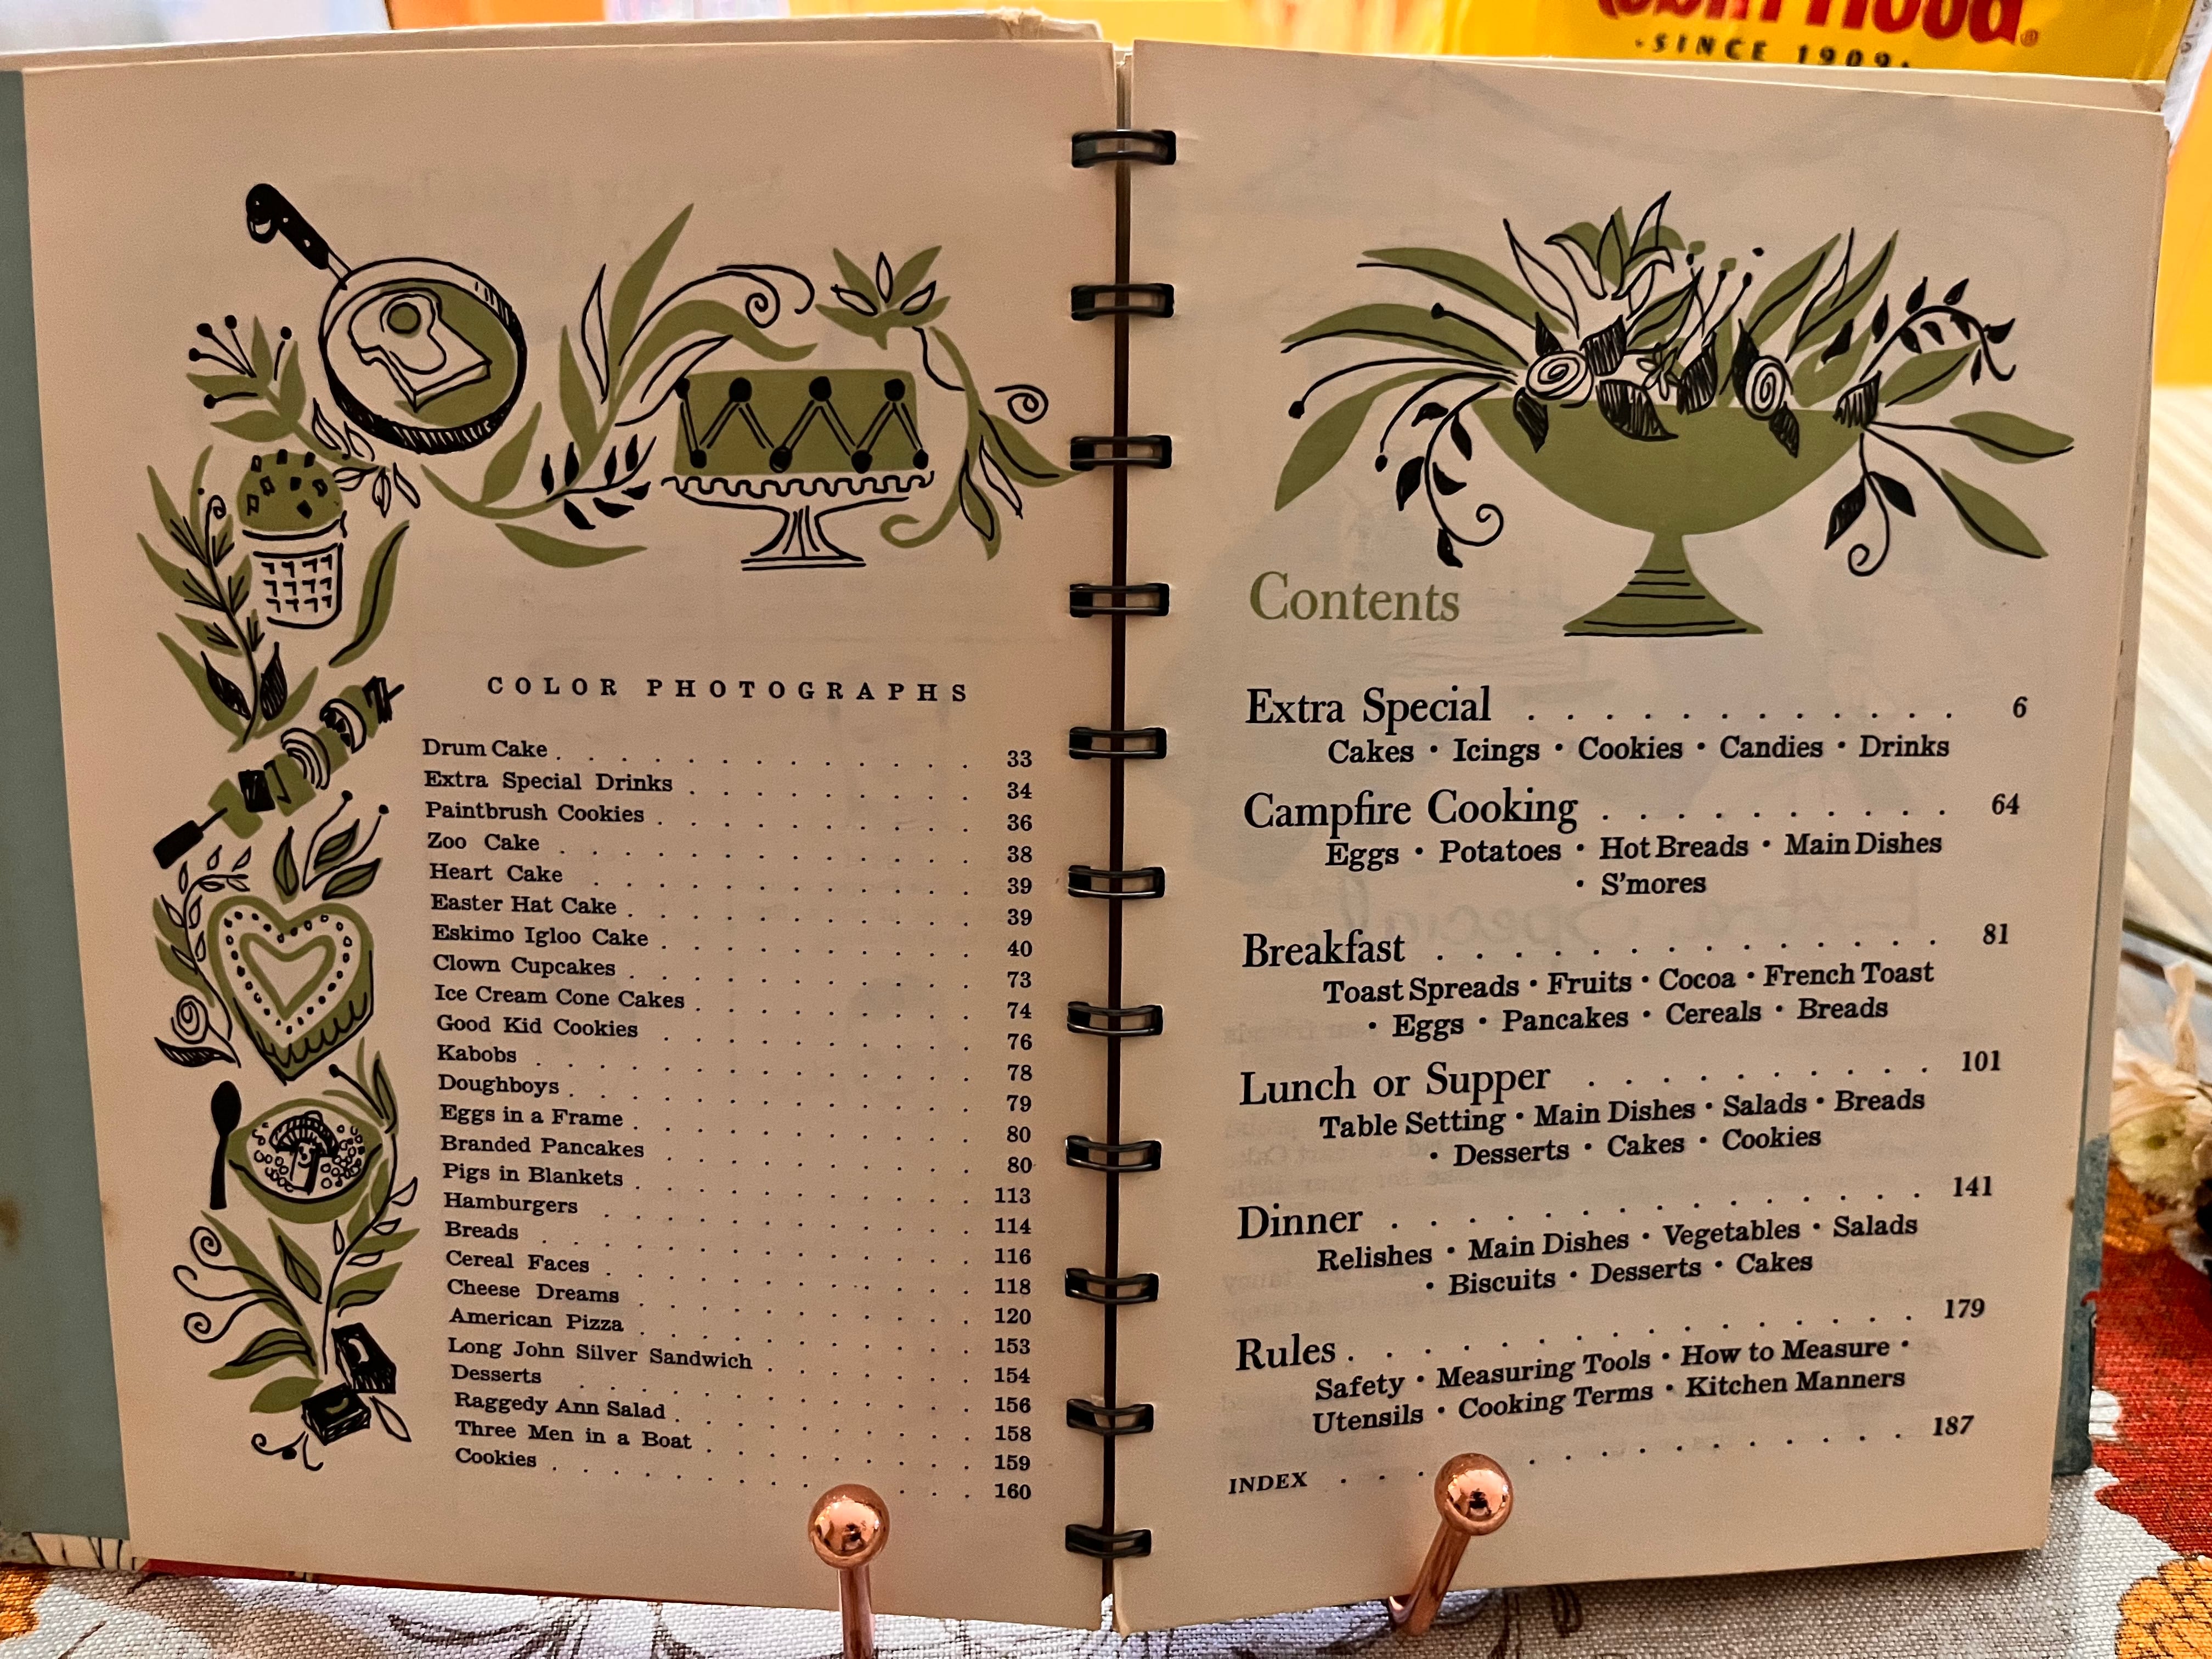 Robin Hood®
·SINCE 1909·
COLOR PHOTOGRAPHS
Drum Cake . . . . . . . . . . . . . 33
Extra Special Drinks . . . . . . . . . 34
Paintbrush Cookies . . . . . . . . . . 36
Zoo Cake . . . . . . . . . . . . . 38
Heart Cake . . . . . . . . . . . . 39
Easter Hat Cake . . . . . . . . . . . 39
Eskimo Igloo Cake . . . . . . . . . . 40
Clown Cupcakes . . . . . . . . . . . 73
Ice Cream Cone Cakes . . . . . . . . . 74
Good Kid Cookies . . . . . . . . . . 76
Kabobs . . . . . . . . . . . . . 78
Doughboys . . . . . . . . . . . . 79
Eggs in a Frame . . . . . . . . . . . 80
Branded Pancakes . . . . . . . . . . 80
Pigs in Blankets . . . . . . . . . . . 113
Hamburgers . . . . . . . . . . . . 114
Breads . . . . . . . . . . . . . 116
Cereal Faces . . . . . . . . . . . . 118
Cheese Dreams . . . . . . . . . . . 120
American Pizza . . . . . . . . . . . 153
Long John Silver Sandwich . . . . . . . 154
Desserts . . . . . . . . . . . . . 156
Raggedy Ann Salad . . . . . . . . . . 158
Three Men in a Boat . . . . . . . . . 159
Cookies . . . . . . . . . . . . . 160
Contents
Extra Special . . . . . . . . . . . . . 6
Cakes • Icings • Cookies • Candies • Drinks
Campfire Cooking . . . . . . . . . . 64
Eggs • Potatoes • Hot Breads • Main Dishes
• S'mores
Breakfast . . . . . . . . . . . . . . 81
Toast Spreads • Fruits • Cocoa • French Toast
• Eggs • Pancakes • Cereals • Breads
Lunch or Supper . . . . . . . . . . 101
Table Setting • Main Dishes • Salads • Breads
• Desserts • Cakes • Cookies
Dinner . . . . . . . . . . . . . . 141
Relishes • Main Dishes • Vegetables • Salads
• Biscuits • Desserts • Cakes
Rules . . . . . . . . . . . . . . . 179
Safety • Measuring Tools • How to Measure •
Utensils • Cooking Terms • Kitchen Manners
INDEX . . . . . . . . . . . . . . 187